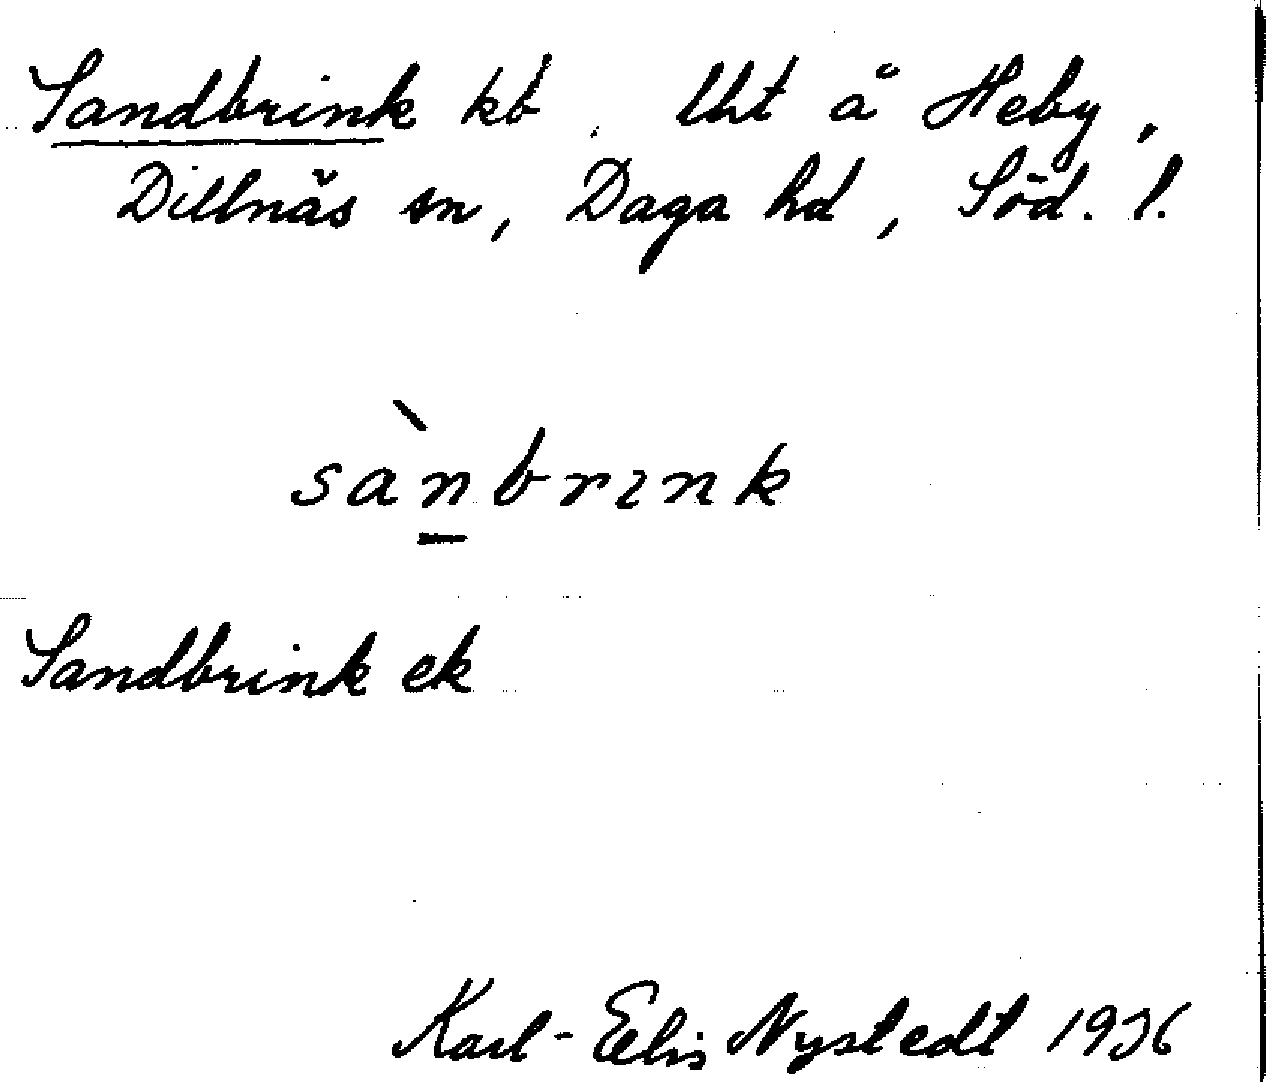 Sandbrink kb. Uht å Heby,
Dillnäs sn, Daga hd, Söd. l.
sàn̲brınk
Sandbrink ek
Karl-Elis Nystedt 1936